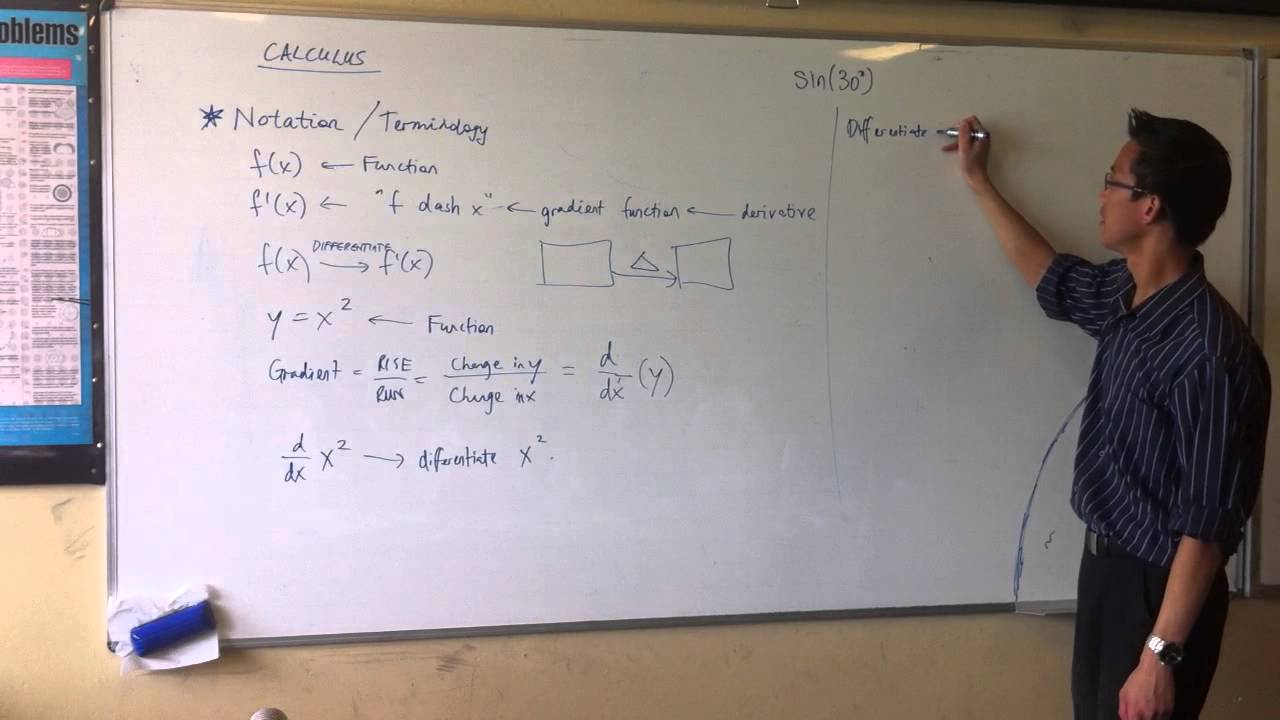 oblems
CALCULUS
sin(30°)
* Notation / Terminology
Differentiate
f(x) ← Function
f'(x) ← "f dash x" ← gradient function ← derivative
f(x) DIFFERENTIATE → f'(x)
△
y = x² ← Function
Gradient = RISE/RUN = Change in y/Change in x = d/dx (y)
d/dx x² → differentiate x².